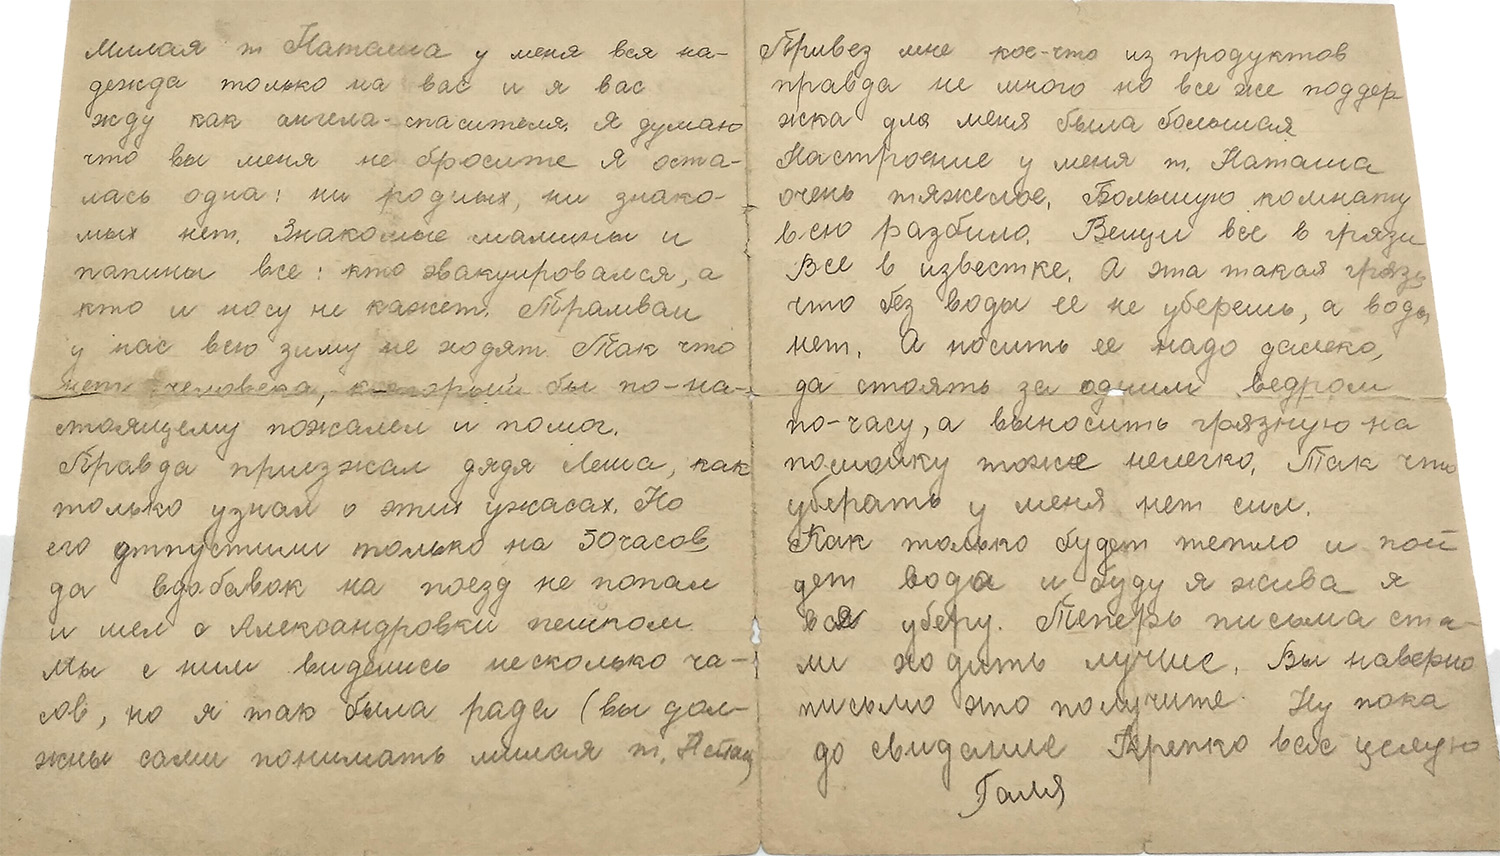 Милая т Наташа у меня вся на-
дежда только на вас и я вас
жду как ангела-спасителя. Я думаю
что вы меня не бросите Я оста-
лась одна: ни родных, ни знако-
мых нет. Знакомые мамины и
папины все: кто эвакуировался, а
кто и носу не кажет. Трамваи
у нас всю зиму не ходят Так что
нет человека, который бы по-на-
стоящему пожалел и помог.
Правда приезжал дядя Леша, как
только узнал о этих ужасах. Но
его отпустили только на 50 часов
да вдобавок на поезд не попал
и шел с Александровки пешком
Мы с ним виделись несколько ча-
сов, но я так была рада (вы дол-
жны сами понимать милая т.
Привез мне кое-что из продуктов
правда не много но все же поддер
жка для меня была большая
Настроение у меня т. Наташа
очень тяжелое. Большую комнату
всю разбило. Вещи все в грязи
Все в известке. А эта такая грязь
что без воды ее не уберешь, а воды
нет. А носить ее надо далеко,
да стоять за одним ведром
по-часу, а выносить грязную на
помойку тоже нелегко. Так что
убирать у меня нет сил.
Как только будет тепло и пой
дет вода и буду я жива я
все уберу. Теперь письма ста-
ли ходить лучше. Вы наверно
письмо это получите. Ну пока
до свидание Крепко вас целую
Галя